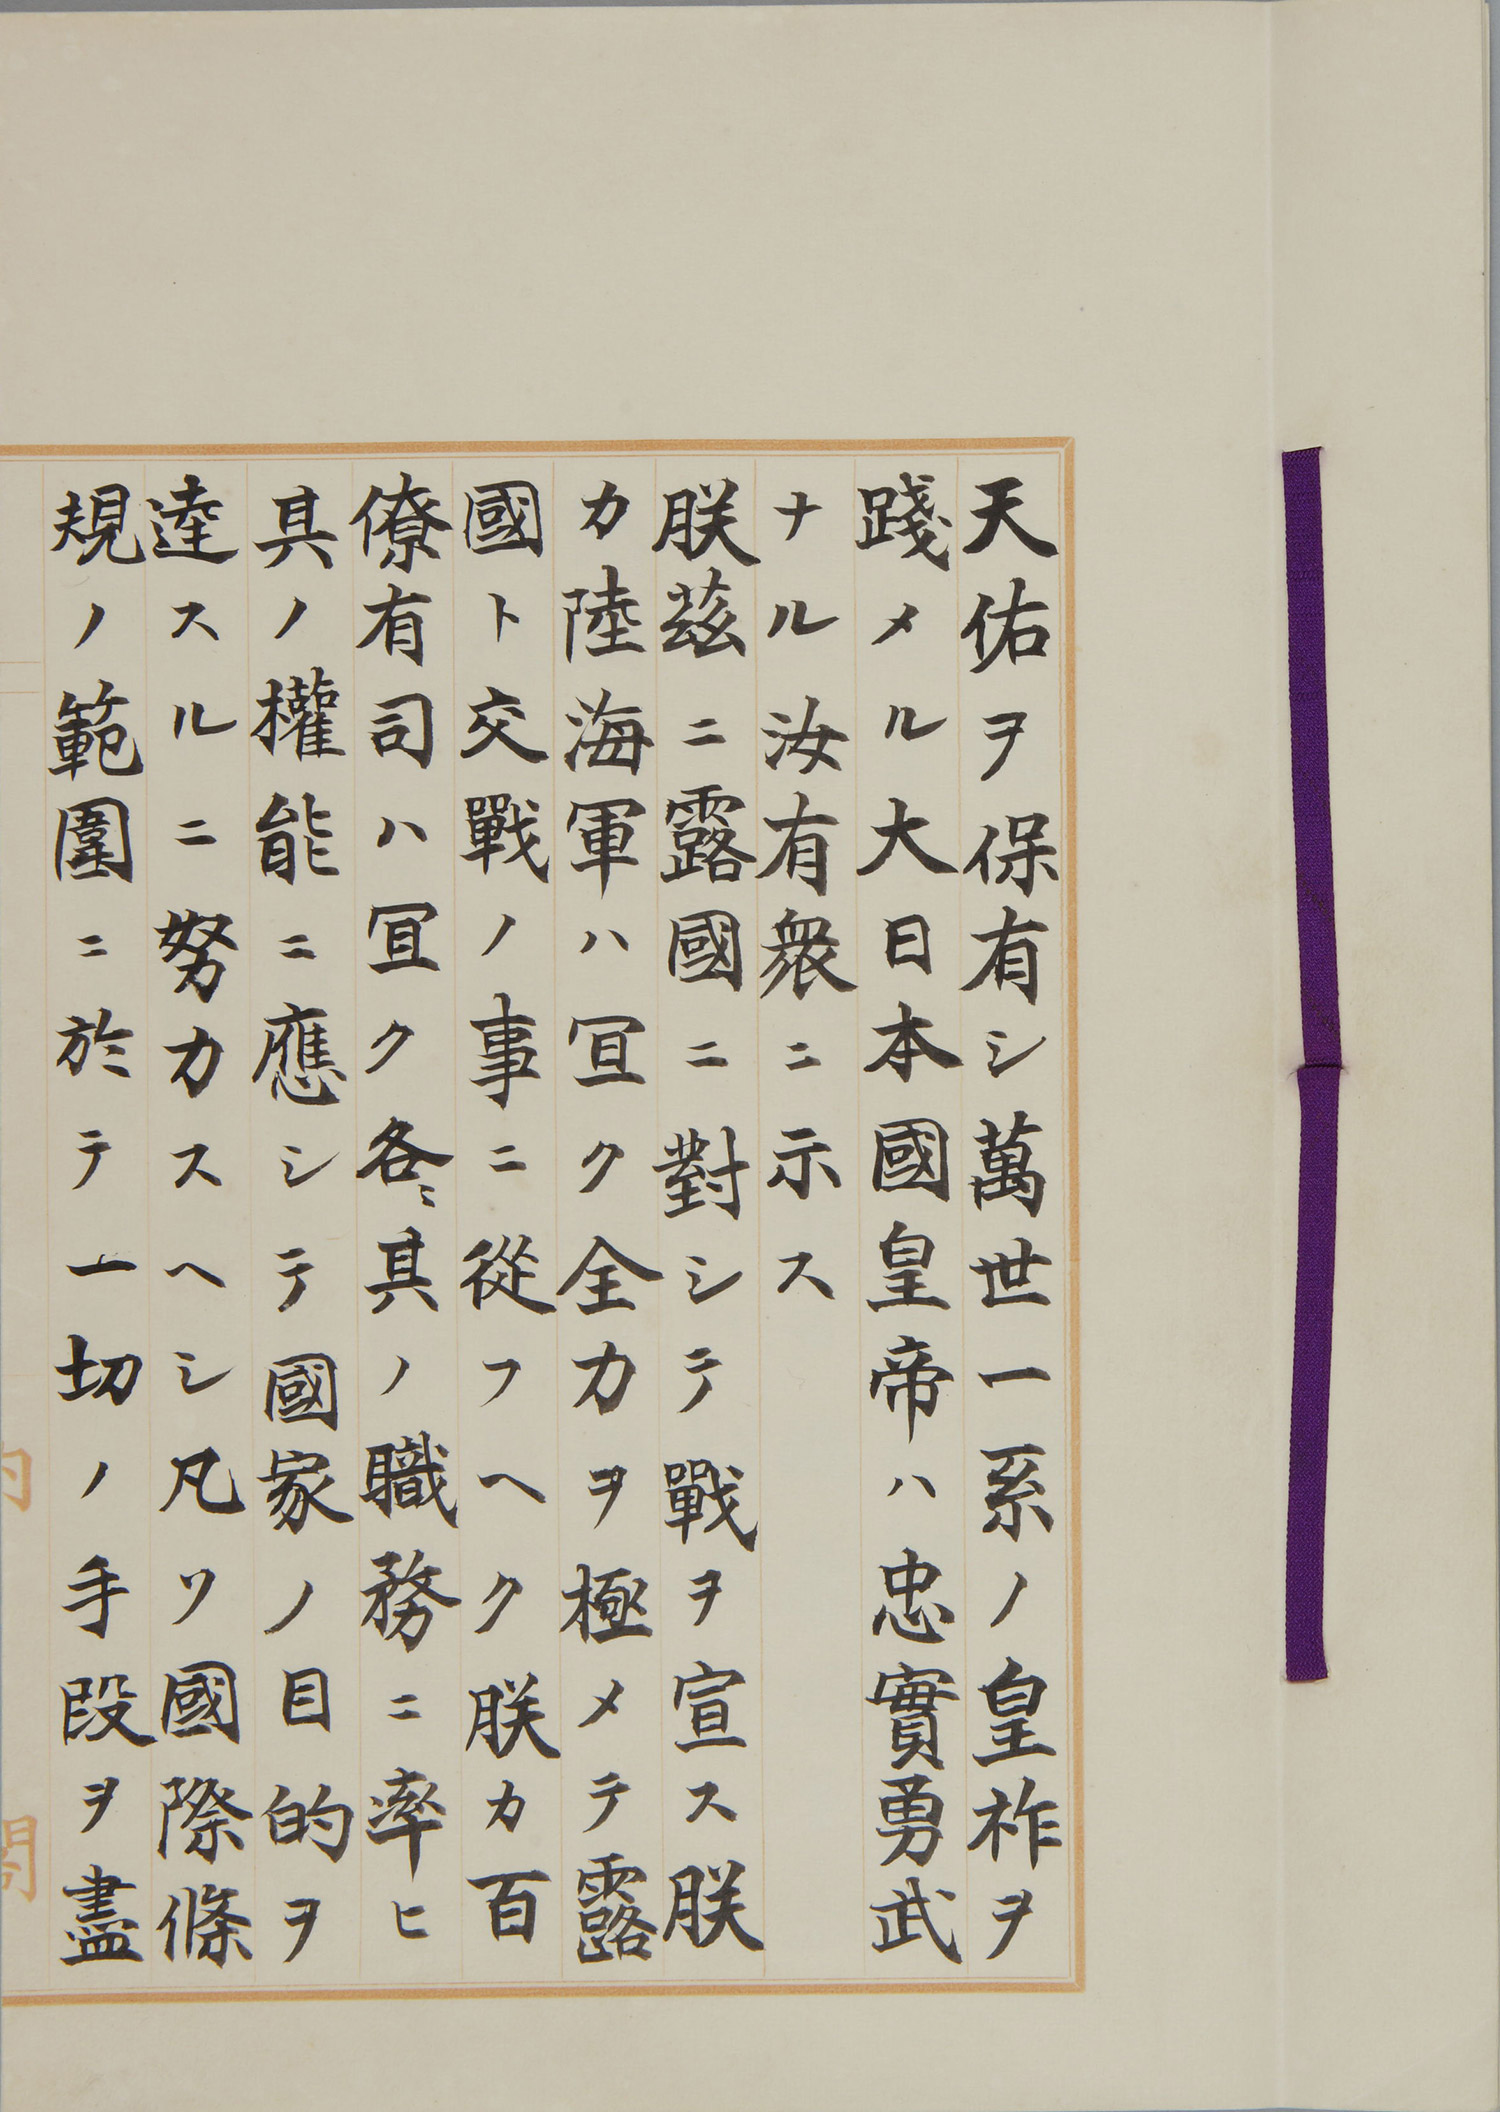 天佑ヲ保有シ萬世一系ノ皇祚ヲ
踐メル大日本國皇帝ハ忠實勇武
ナル汝有衆ニ示ス
朕茲ニ露國ニ對シテ戰ヲ宣ス朕
カ陸海軍ハ宜ク全力ヲ極メテ露
國ト交戰ノ事ニ從フヘク朕カ百
僚有司ハ宜ク各〻其ノ職務ニ率ヒ
其ノ權能ニ應シテ國家ノ目的ヲ
達スルニ努力スヘシ凡ソ國際條
規ノ範圍ニ於テ一切ノ手段ヲ盡